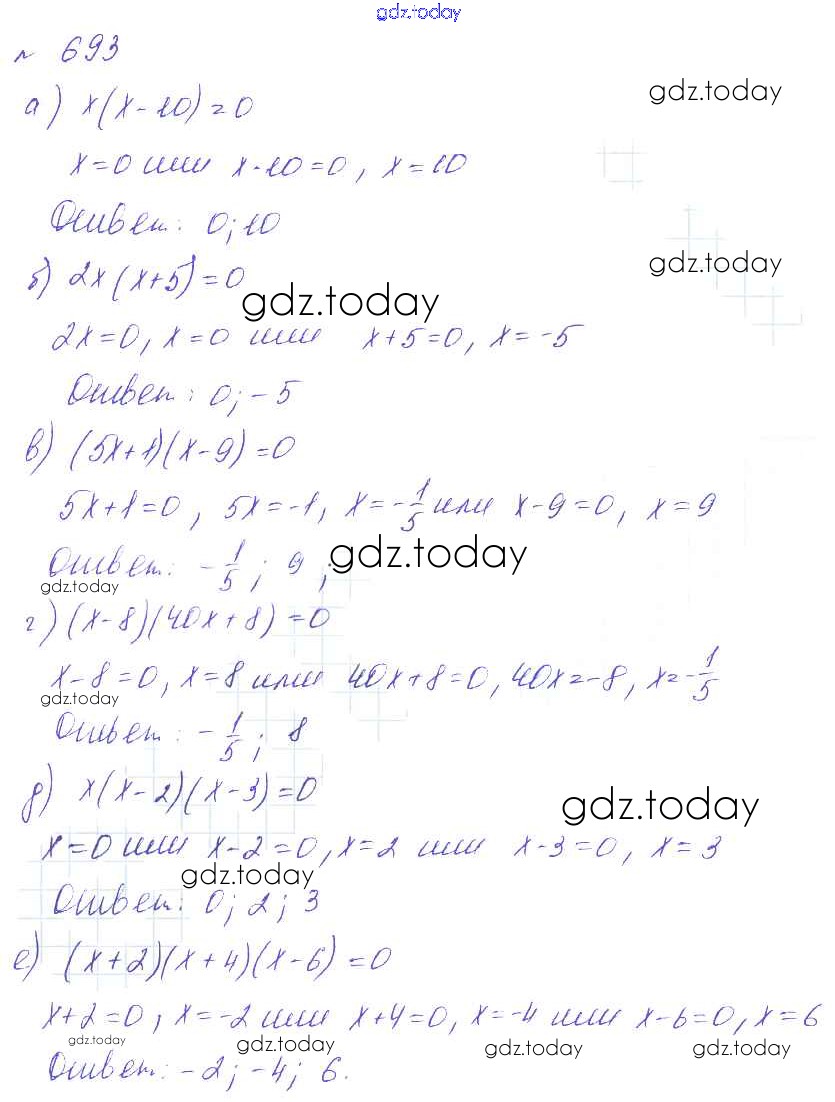 gdz.today
№ 693
а) x(x-10)=0
gdz.today
x=0 или x-10=0, x=10
Ответ: 0; 10
б) 2x(x+5)=0
gdz.today
gdz.today
2x=0, x=0 или x+5=0, x=-5
Ответ: 0; -5
в) (5x+1)(x-9)=0
5x+1=0, 5x=-1, x=-1/5 или x-9=0, x=9
Ответ: -1/5; 9;
gdz.today
gdz.today
г) (x-8)(40x+8)=0
x-8=0, x=8 или 40x+8=0, 40x=-8, x=-1/5
gdz.today
Ответ: -1/5; 8
д) x(x-2)(x-3)=0
gdz.today
x=0 или x-2=0, x=2 или x-3=0, x=3
gdz.today
Ответ: 0; 2; 3
е) (x+2)(x+4)(x-6)=0
x+2=0, x=-2 или x+4=0, x=-4 или x-6=0, x=6
gdz.today gdz.today gdz.today gdz.today
Ответ: -2; -4; 6.